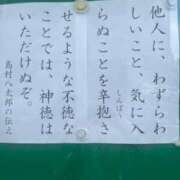 他人に、わずらわ
しいこと、気に入
らぬことを辛抱さ
しんぼう
せるような不徳な
ことでは、神徳は
いただけぬぞ。
島村八太郎の伝え